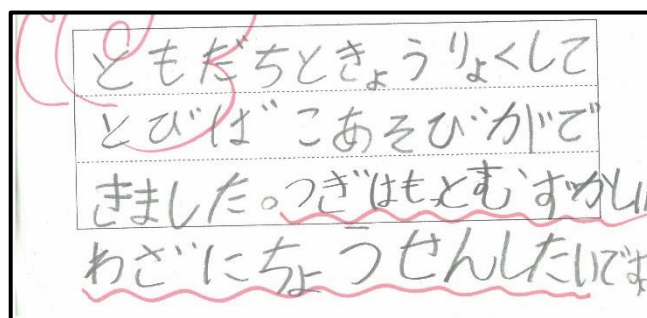 ともだちときょうりょくして
とびばこあそびがで
きました。つぎはもっとむずかしい
わざにちょうせんしたいです